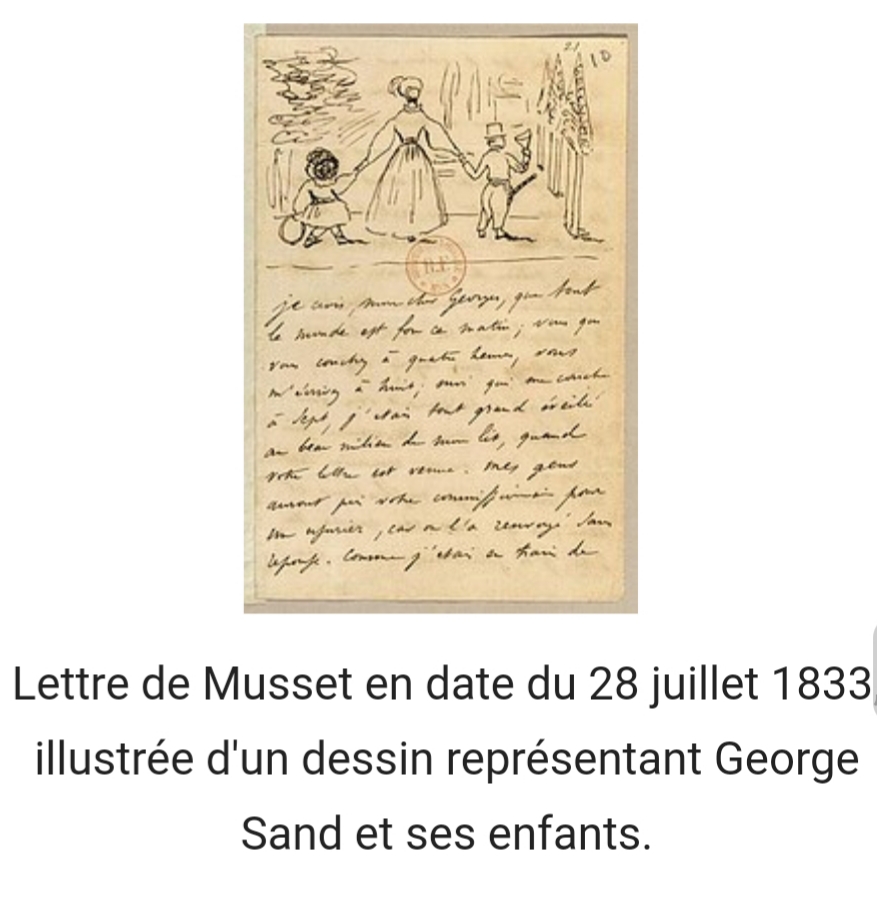 21
10
B.N
je crois, mon cher Georges, que tout
le monde est fou ce matin ; vous qui
vous couchez à quatre heures, vous
m'écrivez à huit ; moi qui me couche
à sept, j'étais tout grand éveillé
au beau milieu de mon lit, quand
votre lettre est venue. Mes gens
auront pris votre commissionnaire pour
un usurier, car on l'a renvoyé sans
réponse. Comme j'étais en train de
Lettre de Musset en date du 28 juillet 1833,
illustrée d'un dessin représentant George
Sand et ses enfants.